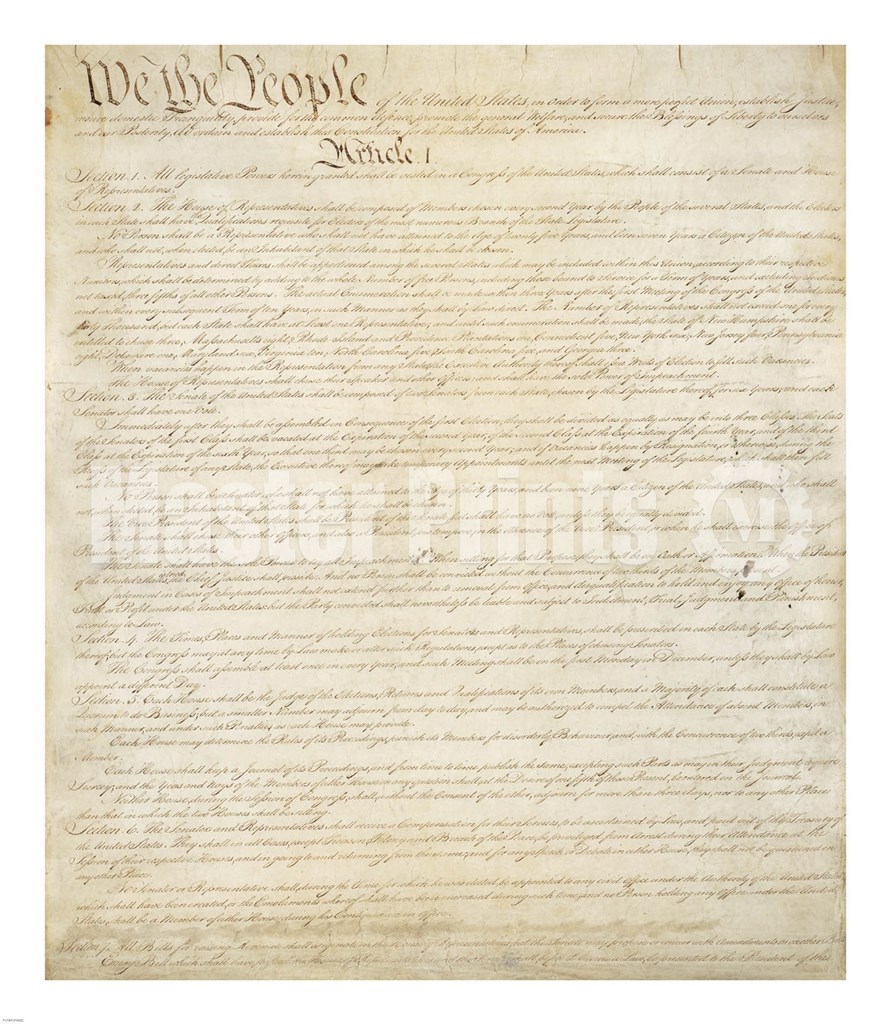 We the People of the United States, in Order to form a more perfect Union, establish Justice,
insure domestic Tranquility, provide for the common defence, promote the general Welfare, and secure the Blessings of Liberty to ourselves
and our Posterity, do ordain and establish this Constitution for the United States of America.
Article. I.
Section. 1. All legislative Powers herein granted shall be vested in a Congress of the United States, which shall consist of a Senate and House
of Representatives.
Section. 2. The House of Representatives shall be composed of Members chosen every second Year by the People of the several States, and the Electors
in each State shall have Qualifications requisite for Electors of the most numerous Branch of the State Legislature.
No Person shall be a Representative who shall not have attained to the Age of twenty five Years, and been seven Years a Citizen of the United States,
and who shall not, when elected, be an Inhabitant of that State in which he shall be chosen.
Representatives and direct Taxes shall be apportioned among the several States which may be included within this Union, according to their respective
Numbers, which shall be determined by adding to the whole Number of free Persons, including those bound to Service for a Term of Years, and excluding Indians
not taxed, three fifths of all other Persons. The actual Enumeration shall be made within three Years after the first Meeting of the Congress of the United States,
and within every subsequent Term of ten Years, in such Manner as they shall by Law direct. The Number of Representatives shall not exceed one for every
thirty Thousand, but each State shall have at Least one Representative; and until such enumeration shall be made, the State of New Hampshire shall be
entitled to chuse three, Massachusetts eight, Rhode-Island and Providence Plantations one, Connecticut five, New-York six, New Jersey four, Pennsylvania
eight, Delaware one, Maryland six, Virginia ten, North Carolina five, South Carolina five, and Georgia three.
When vacancies happen in the Representation from any State, the Executive Authority thereof shall issue Writs of Election to fill such Vacancies.
The House of Representatives shall chuse their Speaker and other Officers; and shall have the sole Power of Impeachment.
Section. 3. The Senate of the United States shall be composed of two Senators from each State, chosen by the Legislature thereof, for six Years; and each
Senator shall have one Vote.
Immediately after they shall be assembled in Consequence of the first Election, they shall be divided as equally as may be into three Classes. The Seats
of the Senators of the first Class shall be vacated at the Expiration of the second Year, of the second Class at the Expiration of the fourth Year, and of the third
Class at the Expiration of the sixth Year, so that one third may be chosen every second Year; and if Vacancies happen by Resignation, or otherwise, during the
Recess of the Legislature of any State, the Executive thereof may make temporary Appointments until the next Meeting of the Legislature, which shall then fill
such Vacancies.
No Person shall be a Senator who shall not have attained to the Age of thirty Years, and been nine Years a Citizen of the United States, and who shall
not, when elected, be an Inhabitant of that State for which he shall be chosen.
The Vice President of the United States shall be President of the Senate, but shall have no Vote, unless they be equally divided.
The Senate shall chuse their other Officers, and also a President pro tempore, in the Absence of the Vice President, or when he shall exercise the Office of
President of the United States.
The Senate shall have the sole Power to try all Impeachments. When sitting for that Purpose, they shall be on Oath or Affirmation. When the President
of the United States is tried, the Chief Justice shall preside: And no Person shall be convicted without the Concurrence of two thirds of the Members present.
Judgment in Cases of Impeachment shall not extend further than to removal from Office, and disqualification to hold and enjoy any Office of honor,
Trust or Profit under the United States: but the Party convicted shall nevertheless be liable and subject to Indictment, Trial, Judgment and Punishment,
according to Law.
Section. 4. The Times, Places and Manner of holding Elections for Senators and Representatives, shall be prescribed in each State by the Legislature
thereof; but the Congress may at any time by Law make or alter such Regulations, except as to the Places of chusing Senators.
The Congress shall assemble at least once in every Year, and such Meeting shall be on the first Monday in December, unless they shall by Law
appoint a different Day.
Section. 5. Each House shall be the Judge of the Elections, Returns and Qualifications of its own Members, and a Majority of each shall constitute a
Quorum to do Business; but a smaller Number may adjourn from day to day, and may be authorized to compel the Attendance of absent Members, in
such Manner, and under such Penalties as each House may provide.
Each House may determine the Rules of its Proceedings, punish its Members for disorderly Behaviour, and, with the Concurrence of two thirds, expel a
Member.
Each House shall keep a Journal of its Proceedings, and from time to time publish the same, excepting such Parts as may in their Judgment require
Secrecy; and the Yeas and Nays of the Members of either House on any question shall, at the Desire of one fifth of those Present, be entered on the Journal.
Neither House, during the Session of Congress, shall, without the Consent of the other, adjourn for more than three days, nor to any other Place
than that in which the two Houses shall be sitting.
Section. 6. The Senators and Representatives shall receive a Compensation for their Services, to be ascertained by Law, and paid out of the Treasury of
the United States. They shall in all Cases, except Treason, Felony and Breach of the Peace, be privileged from Arrest during their Attendance at the
Session of their respective Houses, and in going to and returning from the same; and for any Speech or Debate in either House, they shall not be questioned in
any other Place.
No Senator or Representative shall, during the Time for which he was elected, be appointed to any civil Office under the Authority of the United States,
which shall have been created, or the Emoluments whereof shall have been encreased during such time; and no Person holding any Office under the United
States, shall be a Member of either House during his Continuance in Office.
Section. 7. All Bills for raising Revenue shall originate in the House of Representatives; but the Senate may propose or concur with Amendments as on other Bills.
Every Bill which shall have passed the House of Representatives and the Senate, shall, before it become a Law, be presented to the President of the